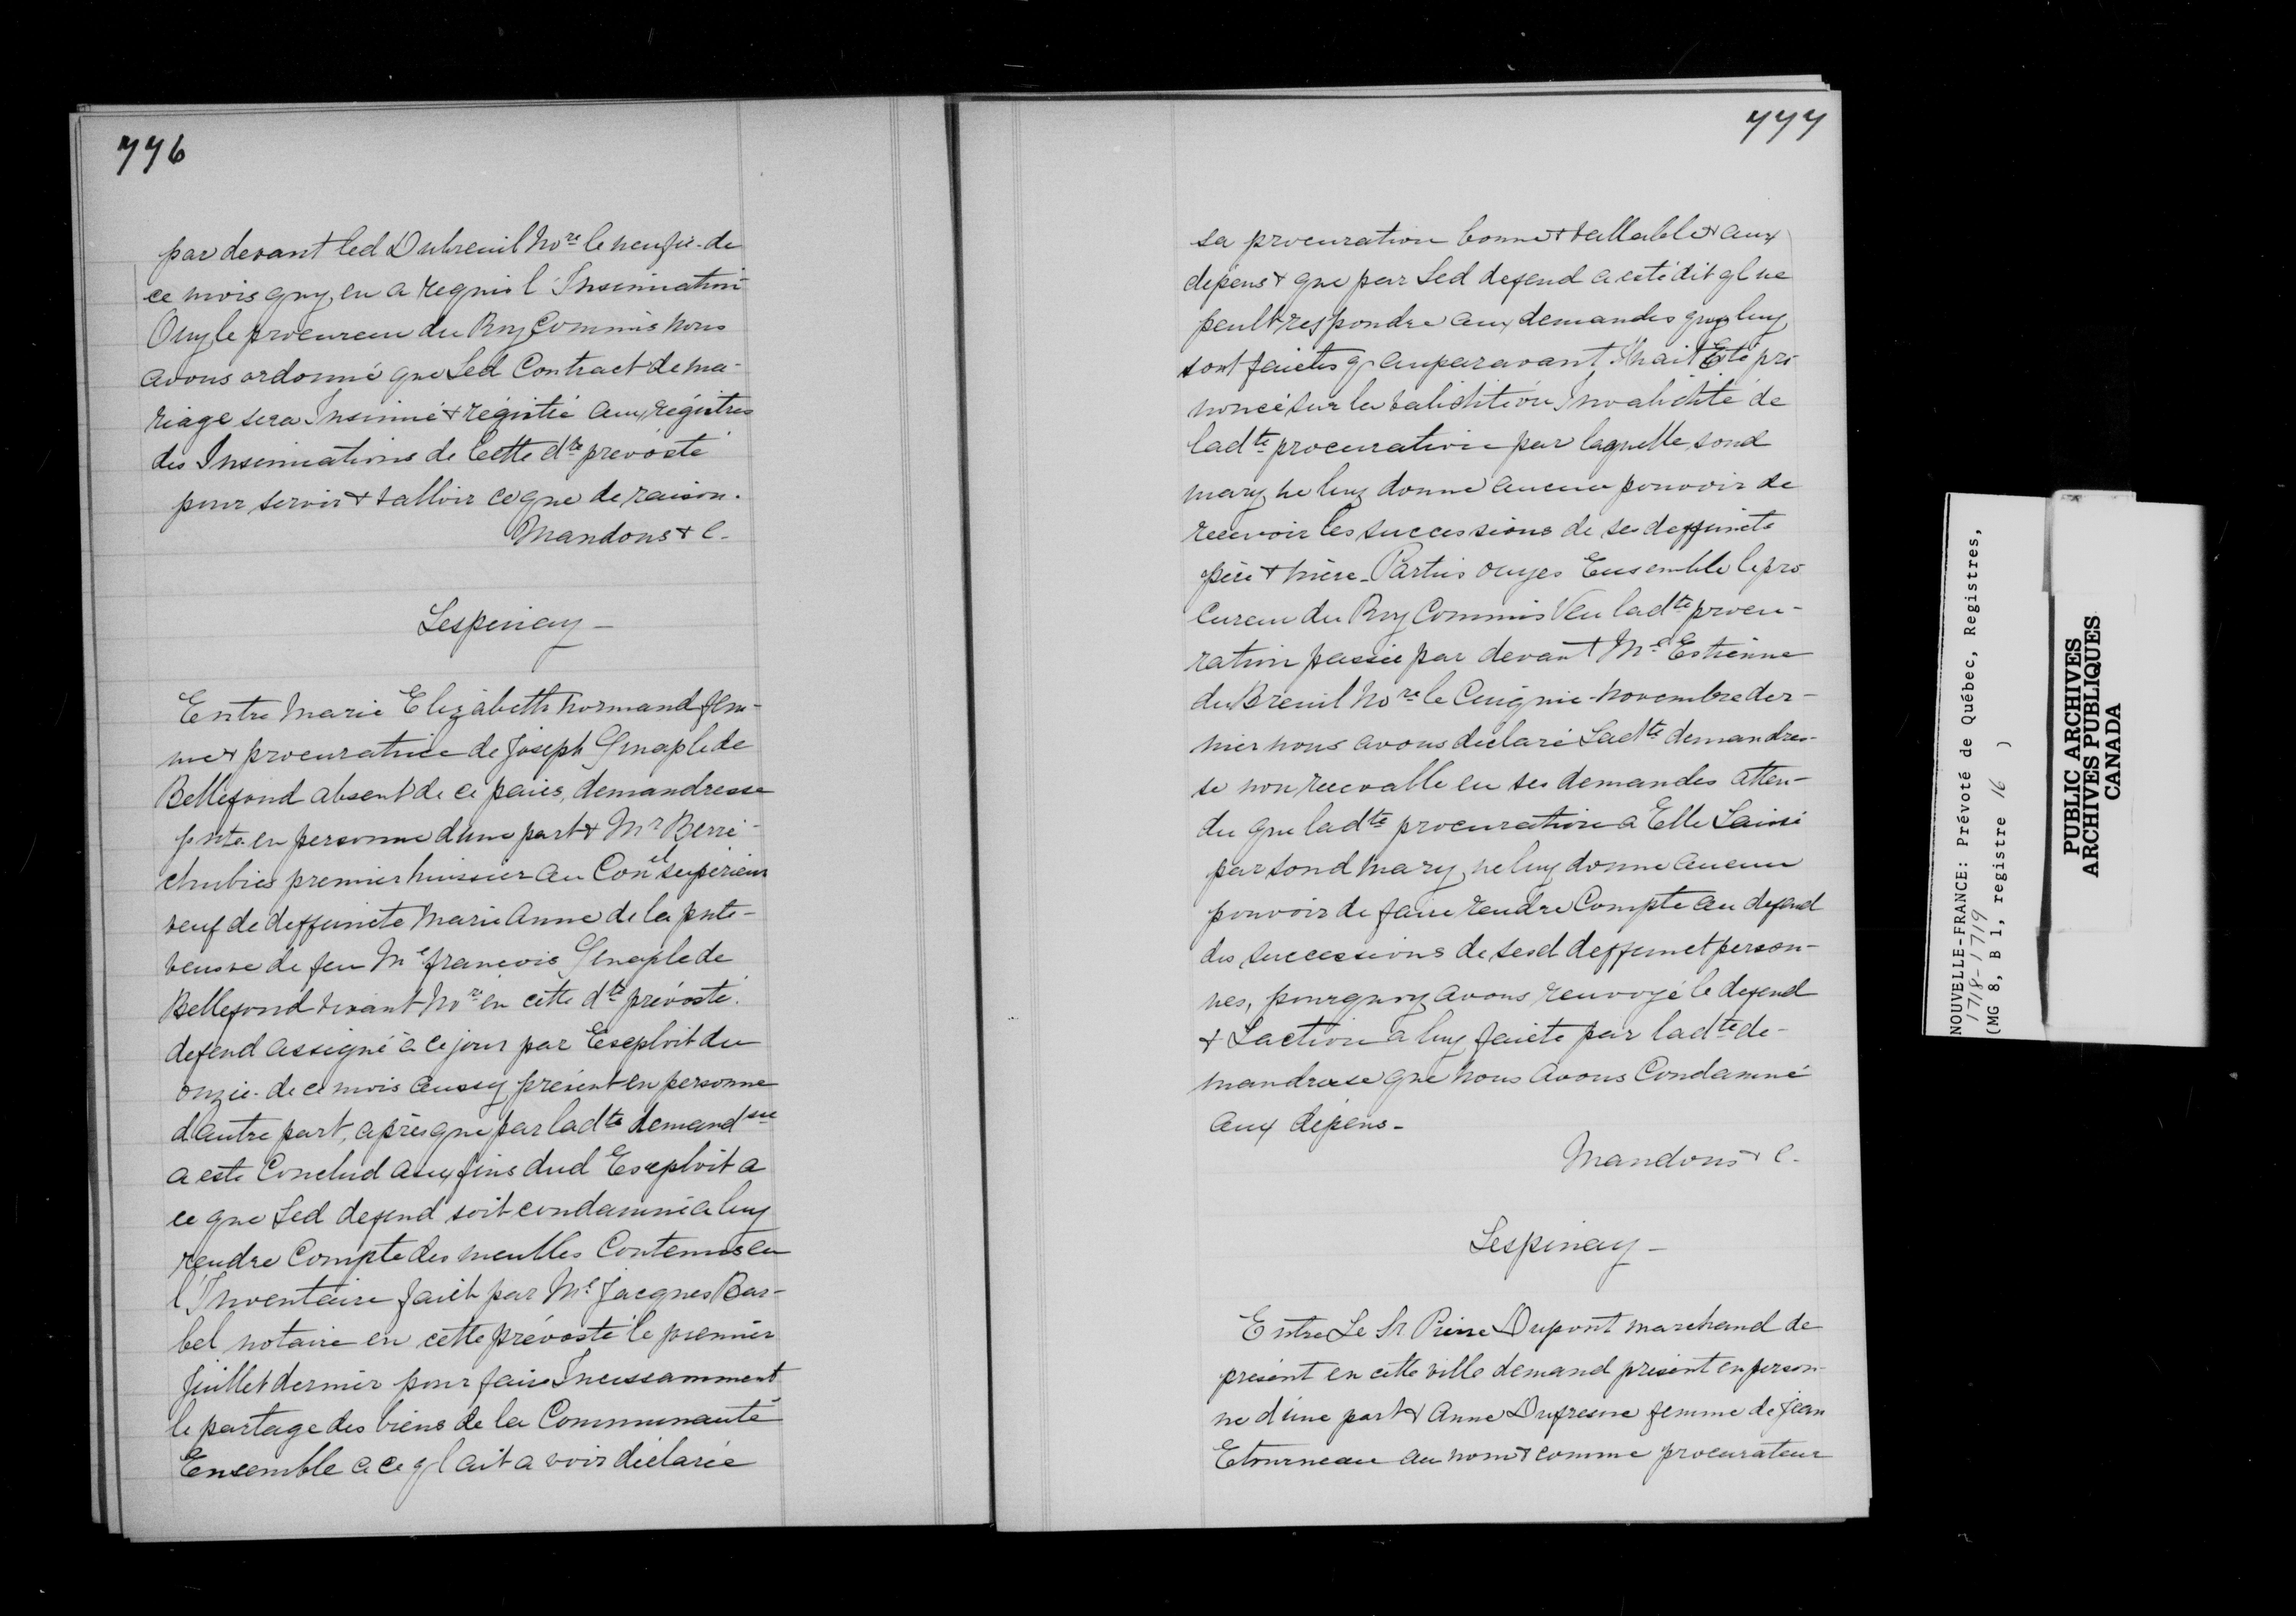 776
par devant led Dubreuil No.re le neufie. de
ce mois quy en a requis l'Insinuation
Ouy le procureur du Roy Commis nous
avons ordonné que Led Contract de ma-
riage sera Insinué & régistré aux régistres
des Insinuations de Cette dte prévosté
pour servir & valloir ce que de raison.
Mandons & c.
Lespinay -
Entre Marie Elizabeth normand fem-
me & procuratrice de Joseph Genaple de
Bellefond absent de ce païs, demandresse
pnte en personne d'une part & Mr Berri-
chubies premier huissier au Conel supérieur
veuf de deffuncte Marie Anne de la pnte-
veusve de feu Me francois Genaple de
Bellefond vivant No.re en cette dte prévosté.
defend assigné à ce jour par Exeploit du
onzie. de ce mois aussy présent en personne
d'autre part, après que par ladte demandsse
a esté Conclud aux fins dud Exeploit a
ce que Led defend soit condamné a luy
rendre Compte des meubles Contenus en
l'Inventaire faict par Me Jacques Bar-
bel notaire en cette prévosté le premier
Juillet dernier pour faire Incessamment
le partage des biens de la Communauté
Ensemble a ce ql ait a voir déclarée
777
sa procuration bonne & vallable & aux
dépens & que par Led defend a eté dit ql ne
peult respondre aux demandes quy luy
sont faictes q auparavant Il nait Eté pro
noncé sur la validité ou Invalidité de
ladte procuration par laquelle sond
mary ne luy donne aucun pouvoir de
recevoir les successions de ses deffuncts
père & mère. Parties ouyes Ensemble le pro
cureur du Roy Commis Veu ladte procu-
ration passée par devant Me Estienne
du Breuil No.re le Cinqme novembre der-
nier nous avons déclaré Ladte demandres-
se non recevable en ses demandes atten-
du que ladte procuration a Elle Laissé
par sond mary ne luy donne aucun
pouvoir de faire rendre Compte au defend
des successions de sesd deffunct person-
nes, pourquoy avons renvoyé le defend
& Laction a luy faicte par ladte de-
mandresse que nous avons Condamné
aux dépens -
Mandons & c.
Lespinay -
Entre Le Sr. Pierre Dupont marchand de
présent en cette ville demand présent en person-
ne d'une part & Anne Dufresne femme de jean
Etourneau au nom & comme procurateur
NOUVELLE-FRANCE: Prévoté de Québec, Registres,
1718-1719
(MG 8, B 1, registre 16 )
PUBLIC ARCHIVES
ARCHIVES PUBLIQUES
CANADA